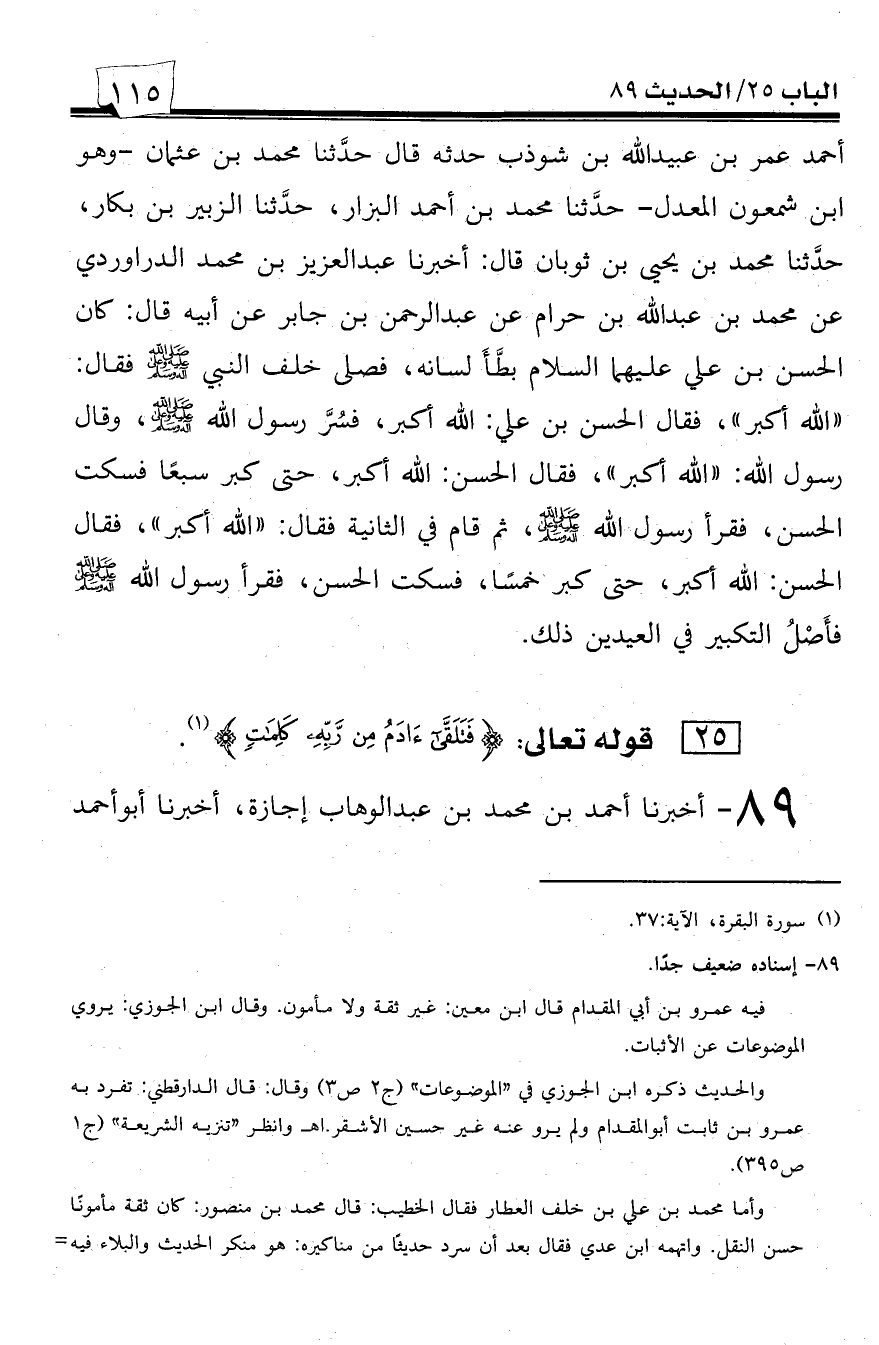 الباب ٢٥/ الحديث ٨٩
١١٥
أحمد عمر بن عبيدالله بن شوذب حدثه قال حدَّثنا محمد بن عثمان -وهو
ابن شمعون المعدل- حدَّثنا محمد بن أحمد البزار، حدَّثنا الزبير بن بكار،
حدَّثنا محمد بن يحيى بن ثوبان قال: أخبرنا عبدالعزيز بن محمد الدراوردي
عن محمد بن عبدالله بن حرام عن عبدالرحمن بن جابر عن أبيه قال: كان
الحسن بن علي عليهما السلام بطَّأَ لسانه، فصلى خلف النبي ﷺ فقال:
«الله أكبر»، فقال الحسن بن علي: الله أكبر، فسُرَّ رسول الله ﷺ، وقال
رسول الله: «الله أكبر»، فقال الحسن: الله أكبر، حتى كبر سبعًا فسكت
الحسن، فقرأ رسول الله ﷺ، ثم قام في الثانية فقال: «الله أكبر»، فقال
الحسن: الله أكبر، حتى كبر خمسًا، فسكت الحسن، فقرأ رسول الله ﷺ
فأَصْلُ التكبير في العيدين ذلك.
٢٥ قوله تعالى: ﴿فَتَلَقَّىٰٓ ءَادَمُ مِن رَّبِّهِۦ كَلِمَٰتٍ﴾(١).
٨٩- أخبرنا أحمد بن محمد بن عبدالوهاب إجازة، أخبرنا أبوأحمد
(١) سورة البقرة، الآية:٣٧.
٨٩- إسناده ضعيف جدًا.
فيه عمرو بن أبي المقدام قال ابن معين: غير ثقة ولا مأمون. وقال ابن الجوزي: يروي
الموضوعات عن الأثبات.
والحديث ذكره ابن الجوزي في "الموضوعات" (ج٢ ص٣) وقال: قال الدارقطني: تفرد به
عمرو بن ثابت أبوالمقدام ولم يرو عنه غير حسين الأشقر.اهـ وانظر "تنزيه الشريعة" (ج١
ص٣٩٥).
وأما محمد بن علي بن خلف العطار فقال الخطيب: قال محمد بن منصور: كان ثقة مأمونًا
حسن النقل. واتهمه ابن عدي فقال بعد أن سرد حديثًا من مناكيره: هو منكر الحديث والبلاء فيه=